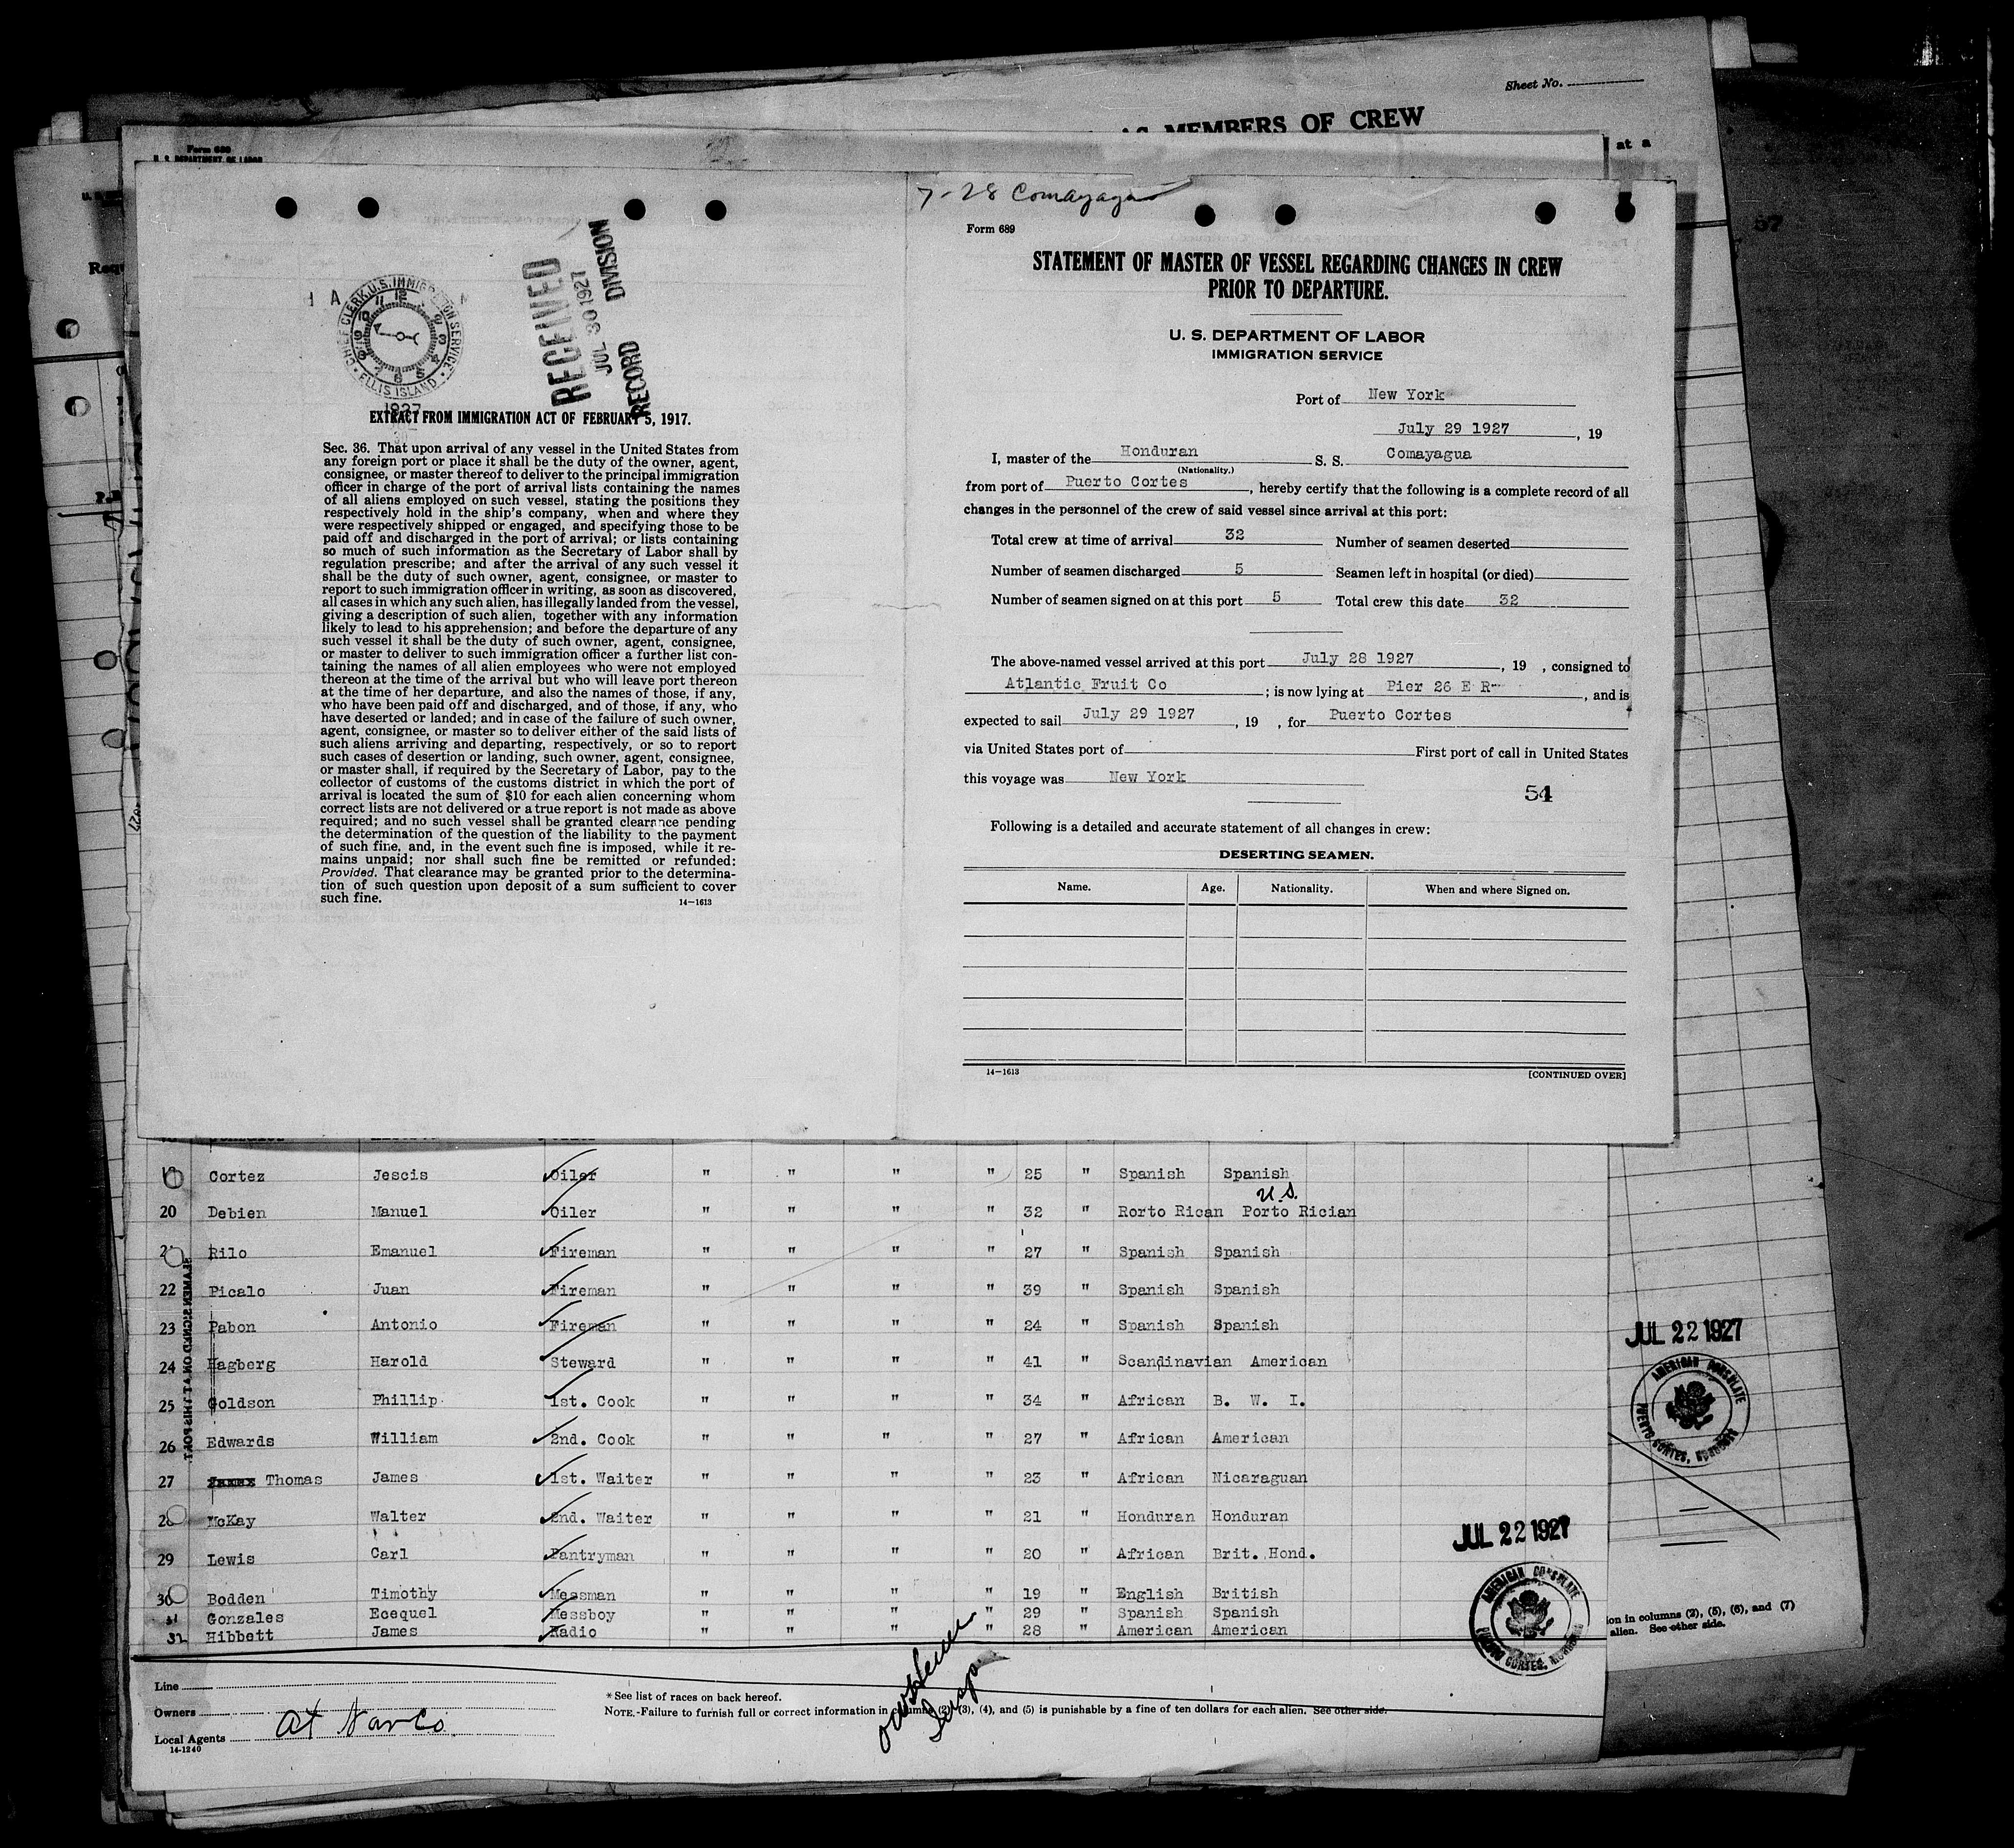 Sheet No.
MEMBERS OF CREW
at a
Form 689
U. S. DEPARTMENT OF LABOR
RECEIVED
JUL 30 1927
RECORD DIVISION
CHIEF CLERK, U.S. IMMIGRATION SERVICE
ELLIS ISLAND
1927
EXTRACT FROM IMMIGRATION ACT OF FEBRUARY 5, 1917.
Sec. 36. That upon arrival of any vessel in the United States from
any foreign port or place it shall be the duty of the owner, agent,
consignee, or master thereof to deliver to the principal immigration
officer in charge of the port of arrival lists containing the names
of all aliens employed on such vessel, stating the positions they
respectively hold in the ship's company, when and where they
were respectively shipped or engaged, and specifying those to be
paid off and discharged in the port of arrival; or lists containing
so much of such information as the Secretary of Labor shall by
regulation prescribe; and after the arrival of any such vessel it
shall be the duty of such owner, agent, consignee, or master to
report to such immigration officer in writing, as soon as discovered,
all cases in which any such alien, has illegally landed from the vessel,
giving a description of such alien, together with any information
likely to lead to his apprehension; and before the departure of any
such vessel it shall be the duty of such owner, agent, consignee,
or master to deliver to such immigration officer a further list con-
taining the names of all alien employees who were not employed
thereon at the time of the arrival but who will leave port thereon
at the time of her departure, and also the names of those, if any,
who have been paid off and discharged, and of those, if any, who
have deserted or landed; and in case of the failure of such owner,
agent, consignee, or master so to deliver either of the said lists of
such aliens arriving and departing, respectively, or so to report
such cases of desertion or landing, such owner, agent, consignee,
or master shall, if required by the Secretary of Labor, pay to the
collector of customs of the customs district in which the port of
arrival is located the sum of $10 for each alien concerning whom
correct lists are not delivered or a true report is not made as above
required; and no such vessel shall be granted clearance pending
the determination of the question of the liability to the payment
of such fine, and, in the event such fine is imposed, while it re-
mains unpaid; nor shall such fine be remitted or refunded:
Provided. That clearance may be granted prior to the determina-
tion of such question upon deposit of a sum sufficient to cover
such fine.
14—1613
7-28 Comayagua
Form 689
STATEMENT OF MASTER OF VESSEL REGARDING CHANGES IN CREW
PRIOR TO DEPARTURE.
U. S. DEPARTMENT OF LABOR
IMMIGRATION SERVICE
Port of New York
July 29 1927, 19
I, master of the Honduran S. S. Comayagua
(Nationality.)
from port of Puerto Cortes, hereby certify that the following is a complete record of all
changes in the personnel of the crew of said vessel since arrival at this port:
Total crew at time of arrival 32 Number of seamen deserted
Number of seamen discharged 5 Seamen left in hospital (or died)
Number of seamen signed on at this port 5 Total crew this date 32
The above-named vessel arrived at this port July 28 1927, 19 , consigned to
Atlantic Fruit Co ; is now lying at Pier 26 E R, and is
expected to sail July 29 1927, 19 , for Puerto Cortes
via United States port of First port of call in United States
this voyage was New York
54
Following is a detailed and accurate statement of all changes in crew:
DESERTING SEAMEN.
Name. Age. Nationality. When and where Signed on.
14—1613 [CONTINUED OVER]
19 Cortez Jescis Oiler " " " " 25 " Spanish Spanish
U.S.
20 Debien Manuel Oiler " " " " 32 " Rorto Rican Porto Rician
21 Rilo Emanuel Fireman " " " " 27 " Spanish Spanish
22 Picalo Juan Fireman " " " " 39 " Spanish Spanish
23 Pabon Antonio Fireman " " " " 24 " Spanish Spanish
24 Hagberg Harold Steward " " " " 41 " Scandinavian American
25 Goldson Phillip 1st. Cook " " " " 34 " African B. W. I.
26 Edwards William 2nd. Cook " " " " 27 " African American
27 Thomas James 1st. Waiter " " " " 23 " African Nicaraguan
28 McKay Walter 2nd. Waiter " " " " 21 " Honduran Honduran
29 Lewis Carl Pantryman " " " " 20 " African Brit. Hond.
30 Bodden Timothy Messman " " " " 19 " English British
31 Gonzales Ecequel Messboy " " " " 29 " Spanish Spanish
32 Hibbett James Radio " " " " 28 " American American
SEAMEN SIGNED ON AT THIS PORT.
JUL 22 1927
AMERICAN CONSULATE
PUERTO CORTES, HONDURAS
JUL 22 1927
AMERICAN CONSULATE
PUERTO CORTES, HONDURAS
ion in columns (2), (5), (6), and (7)
alien. See other side.
Line
Owners
Local Agents
At Nav Co.
14-1240
* See list of races on back hereof.
NOTE.-Failure to furnish full or correct information in columns (2), (3), (4), and (5) is punishable by a fine of ten dollars for each alien. See other side.